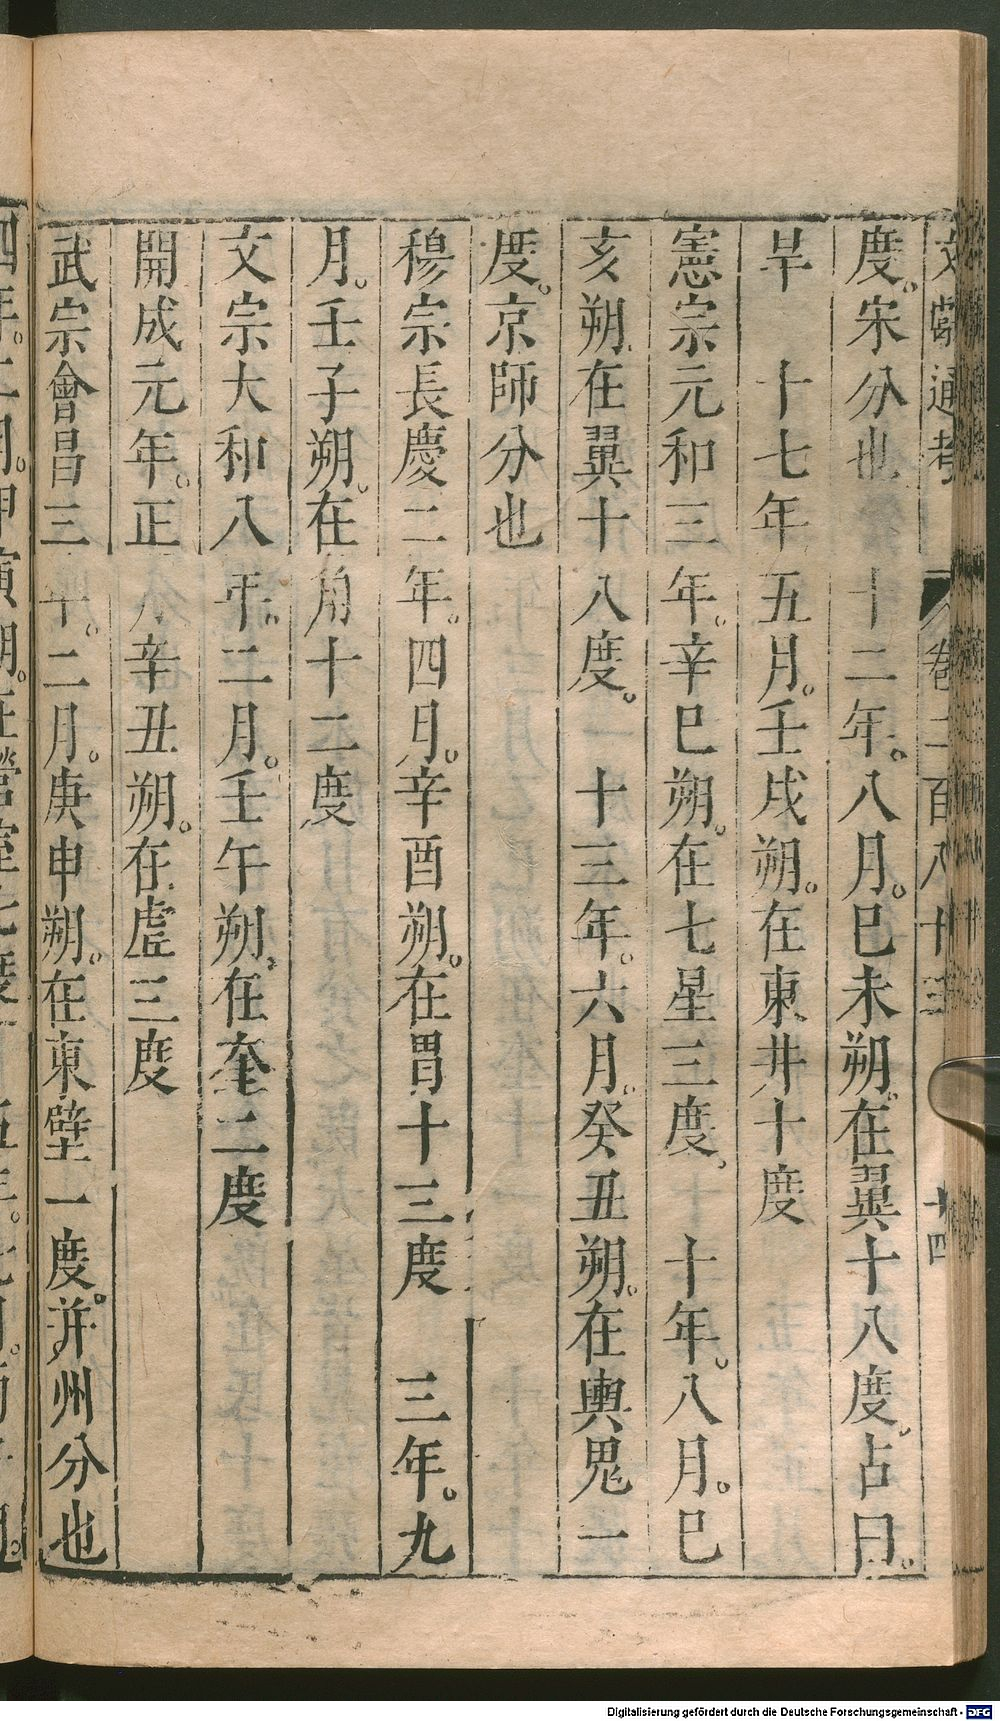 文獻通考 卷二百八十三 十四
度。宋分也 十二年。八月。巳未朔。在翼十八度。占曰。
旱 十七年五月。壬戌朔。在東井十度
憲宗元和三年。辛巳朔。在七星三度。 十年。八月。巳
亥朔在翼十八度。 十三年。六月。癸丑朔。在輿鬼一
度。京師分也
穆宗長慶二年。四月。辛酉朔。在胃十三度 三年。九
月。壬子朔。在角十二度
文宗大和八年。二月。壬午朔。在奎二度
開成元年。正月辛丑朔。在虛三度
武宗會昌三年。二月。庚申朔。在東壁一度。并州分也
四年。二月。甲寅朔。在營室七度 五年。七月。丙午朔。
Digitalisierung gefördert durch die Deutsche Forschungsgemeinschaft - DFG